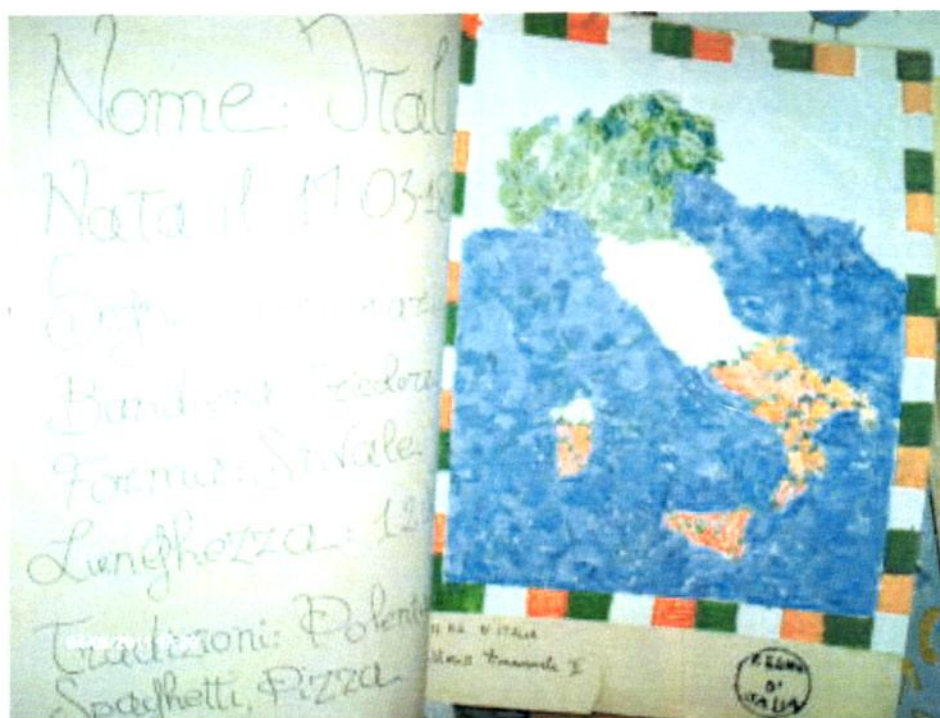 Nome: Ital
Nata il 17 03
Bandiera
Forma: Stivale.
Lunghezza: 12
Tradizioni: Polenta
Spaghetti, Pizza.
IL RE D'ITALIA
Emanuele II
REGNO
D'
ITALIA